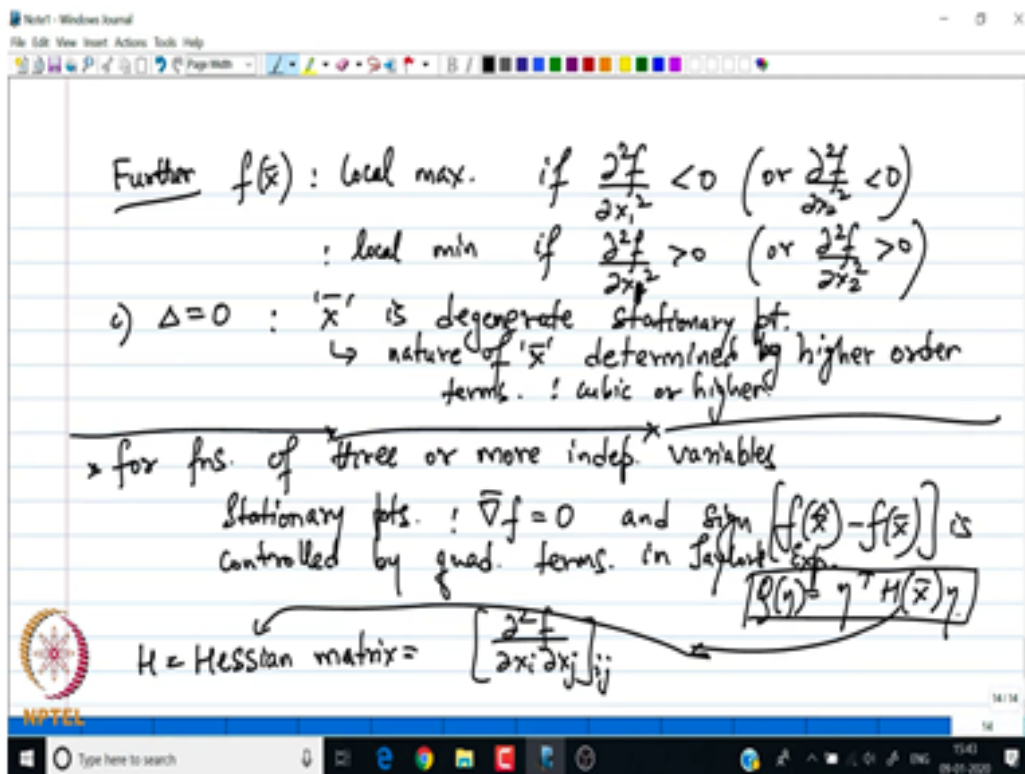 Note1 - Windows Journal
File Edit View Insert Actions Tools Help
Page Width
B I
Further f(x̄) : local max. if ∂²f/∂x₁² <0 (or ∂²f/∂x₂² <0)
: local min if ∂²f/∂x₁² >0 (or ∂²f/∂x₂² >0)
c) Δ=0 : 'x̄' is degenerate stationary pt.
↳ nature of 'x̄' determined by higher order
terms. : cubic or higher
* for fns. of three or more indep. variables
Stationary pts. : ∇̄f = 0 and sign [f(x̂) - f(x̄)] is
controlled by quad. terms. in Taylor's Exp.
Q(η) = ηᵀ H(x̄) η
H = Hessian matrix = [∂²f/∂xᵢ∂xⱼ]ᵢⱼ
NPTEL
14/14
14
Type here to search
ENG
15:43
09-01-2020